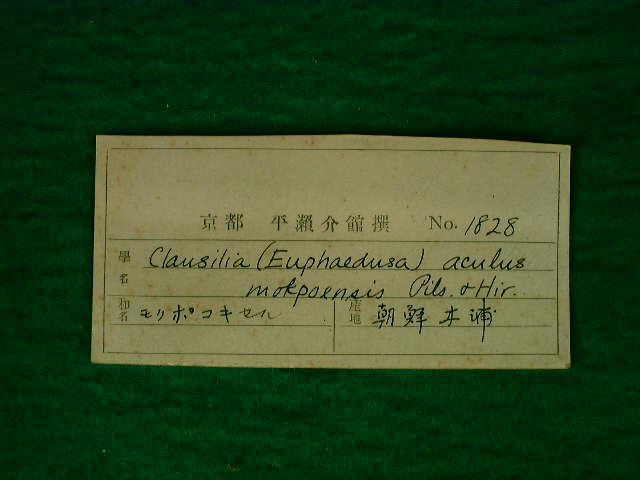 京都 平瀨介館撰 No. 1828
學名 Clausilia (Euphaedusa) aculus
mokpoensis Pils. & Hir.
和名 モリポコキセル 産地 朝鮮木浦